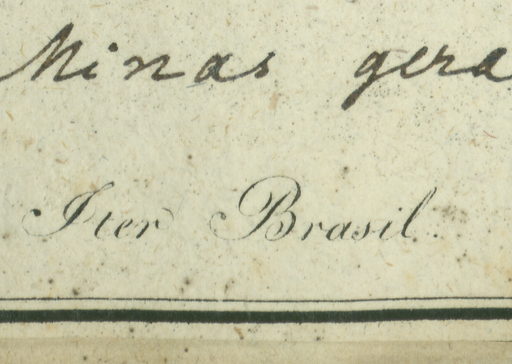 Minas gera
Iter Brasil.